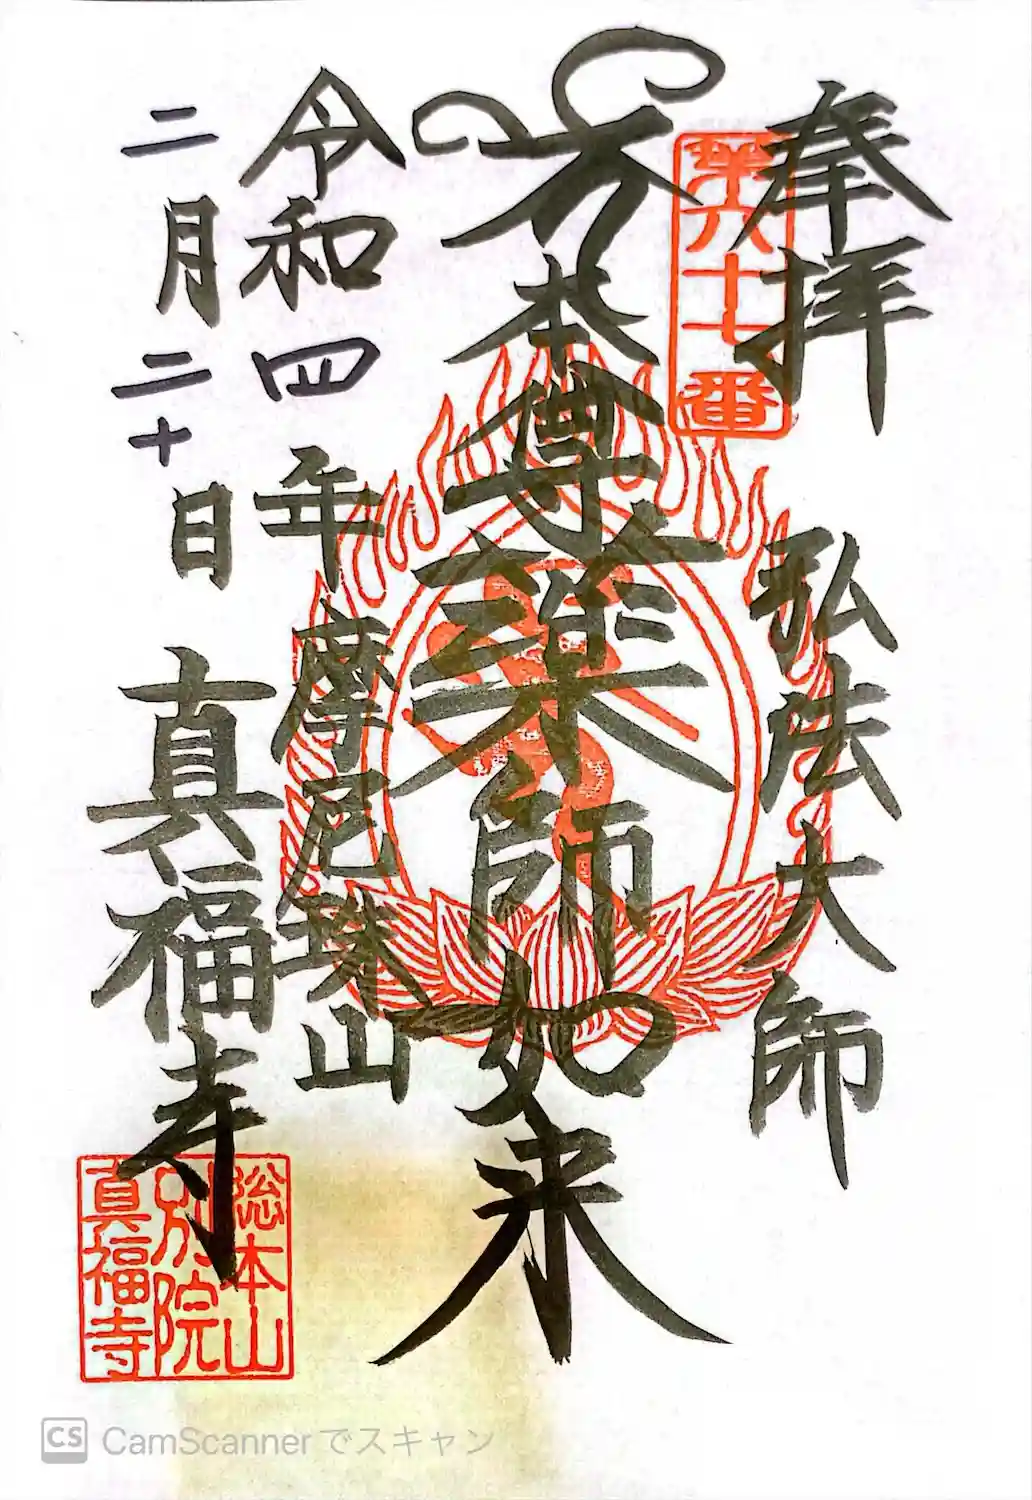 奉拝
弘法大師
第六十七番
本尊薬師如来
令和四年
摩尼珠山
二月二十日
真福寺
総本山
別院
真福寺
CS CamScannerでスキャン